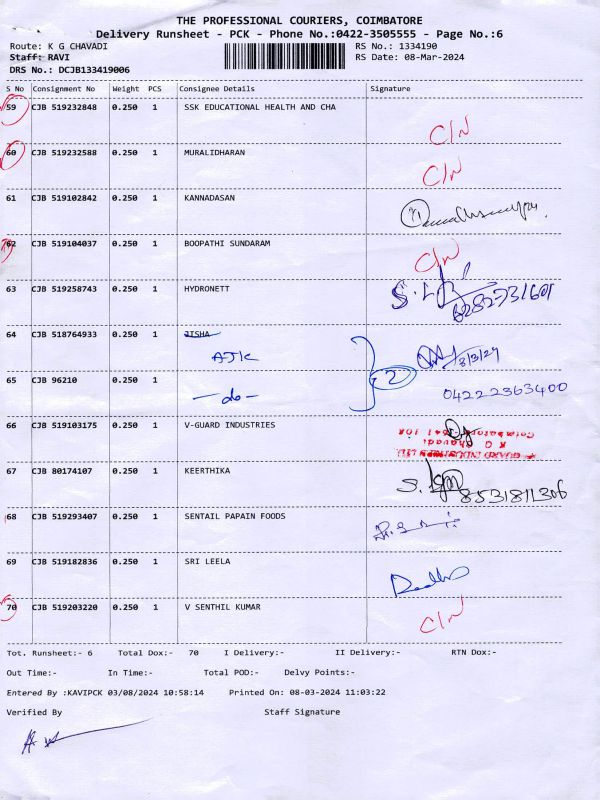 THE PROFESSIONAL COURIERS, COIMBATORE
Delivery Runsheet - PCK - Phone No.:0422-3505555 - Page No.:6
Route: K G CHAVADI RS No.: 1334190
Staff: RAVI RS Date: 08-Mar-2024
DRS No.: DCJB133419006
S No Consignment No Weight PCS Consignee Details Signature
59 CJB 519232848 0.250 1 SSK EDUCATIONAL HEALTH AND CHA
C/N
60 CJB 519232588 0.250 1 MURALIDHARAN
C/N
61 CJB 519102842 0.250 1 KANNADASAN
62 CJB 519104037 0.250 1 BOOPATHI SUNDARAM
C/N
63 CJB 519258743 0.250 1 HYDRONETT
64 CJB 518764933 0.250 1 JISHA
AJK
2
65 CJB 96210 0.250 1
-do-
04222363400
66 CJB 519103175 0.250 1 V-GUARD INDUSTRIES
67 CJB 80174107 0.250 1 KEERTHIKA
8531811306
68 CJB 519293407 0.250 1 SENTAIL PAPAIN FOODS
69 CJB 519182836 0.250 1 SRI LEELA
70 CJB 519203220 0.250 1 V SENTHIL KUMAR
C/N
Tot. Runsheet:- 6 Total Dox:- 70 I Delivery:- II Delivery:- RTN Dox:-
Out Time:- In Time:- Total POD:- Delvy Points:-
Entered By :KAVIPCK 03/08/2024 10:58:14 Printed On: 08-03-2024 11:03:22
Verified By Staff Signature